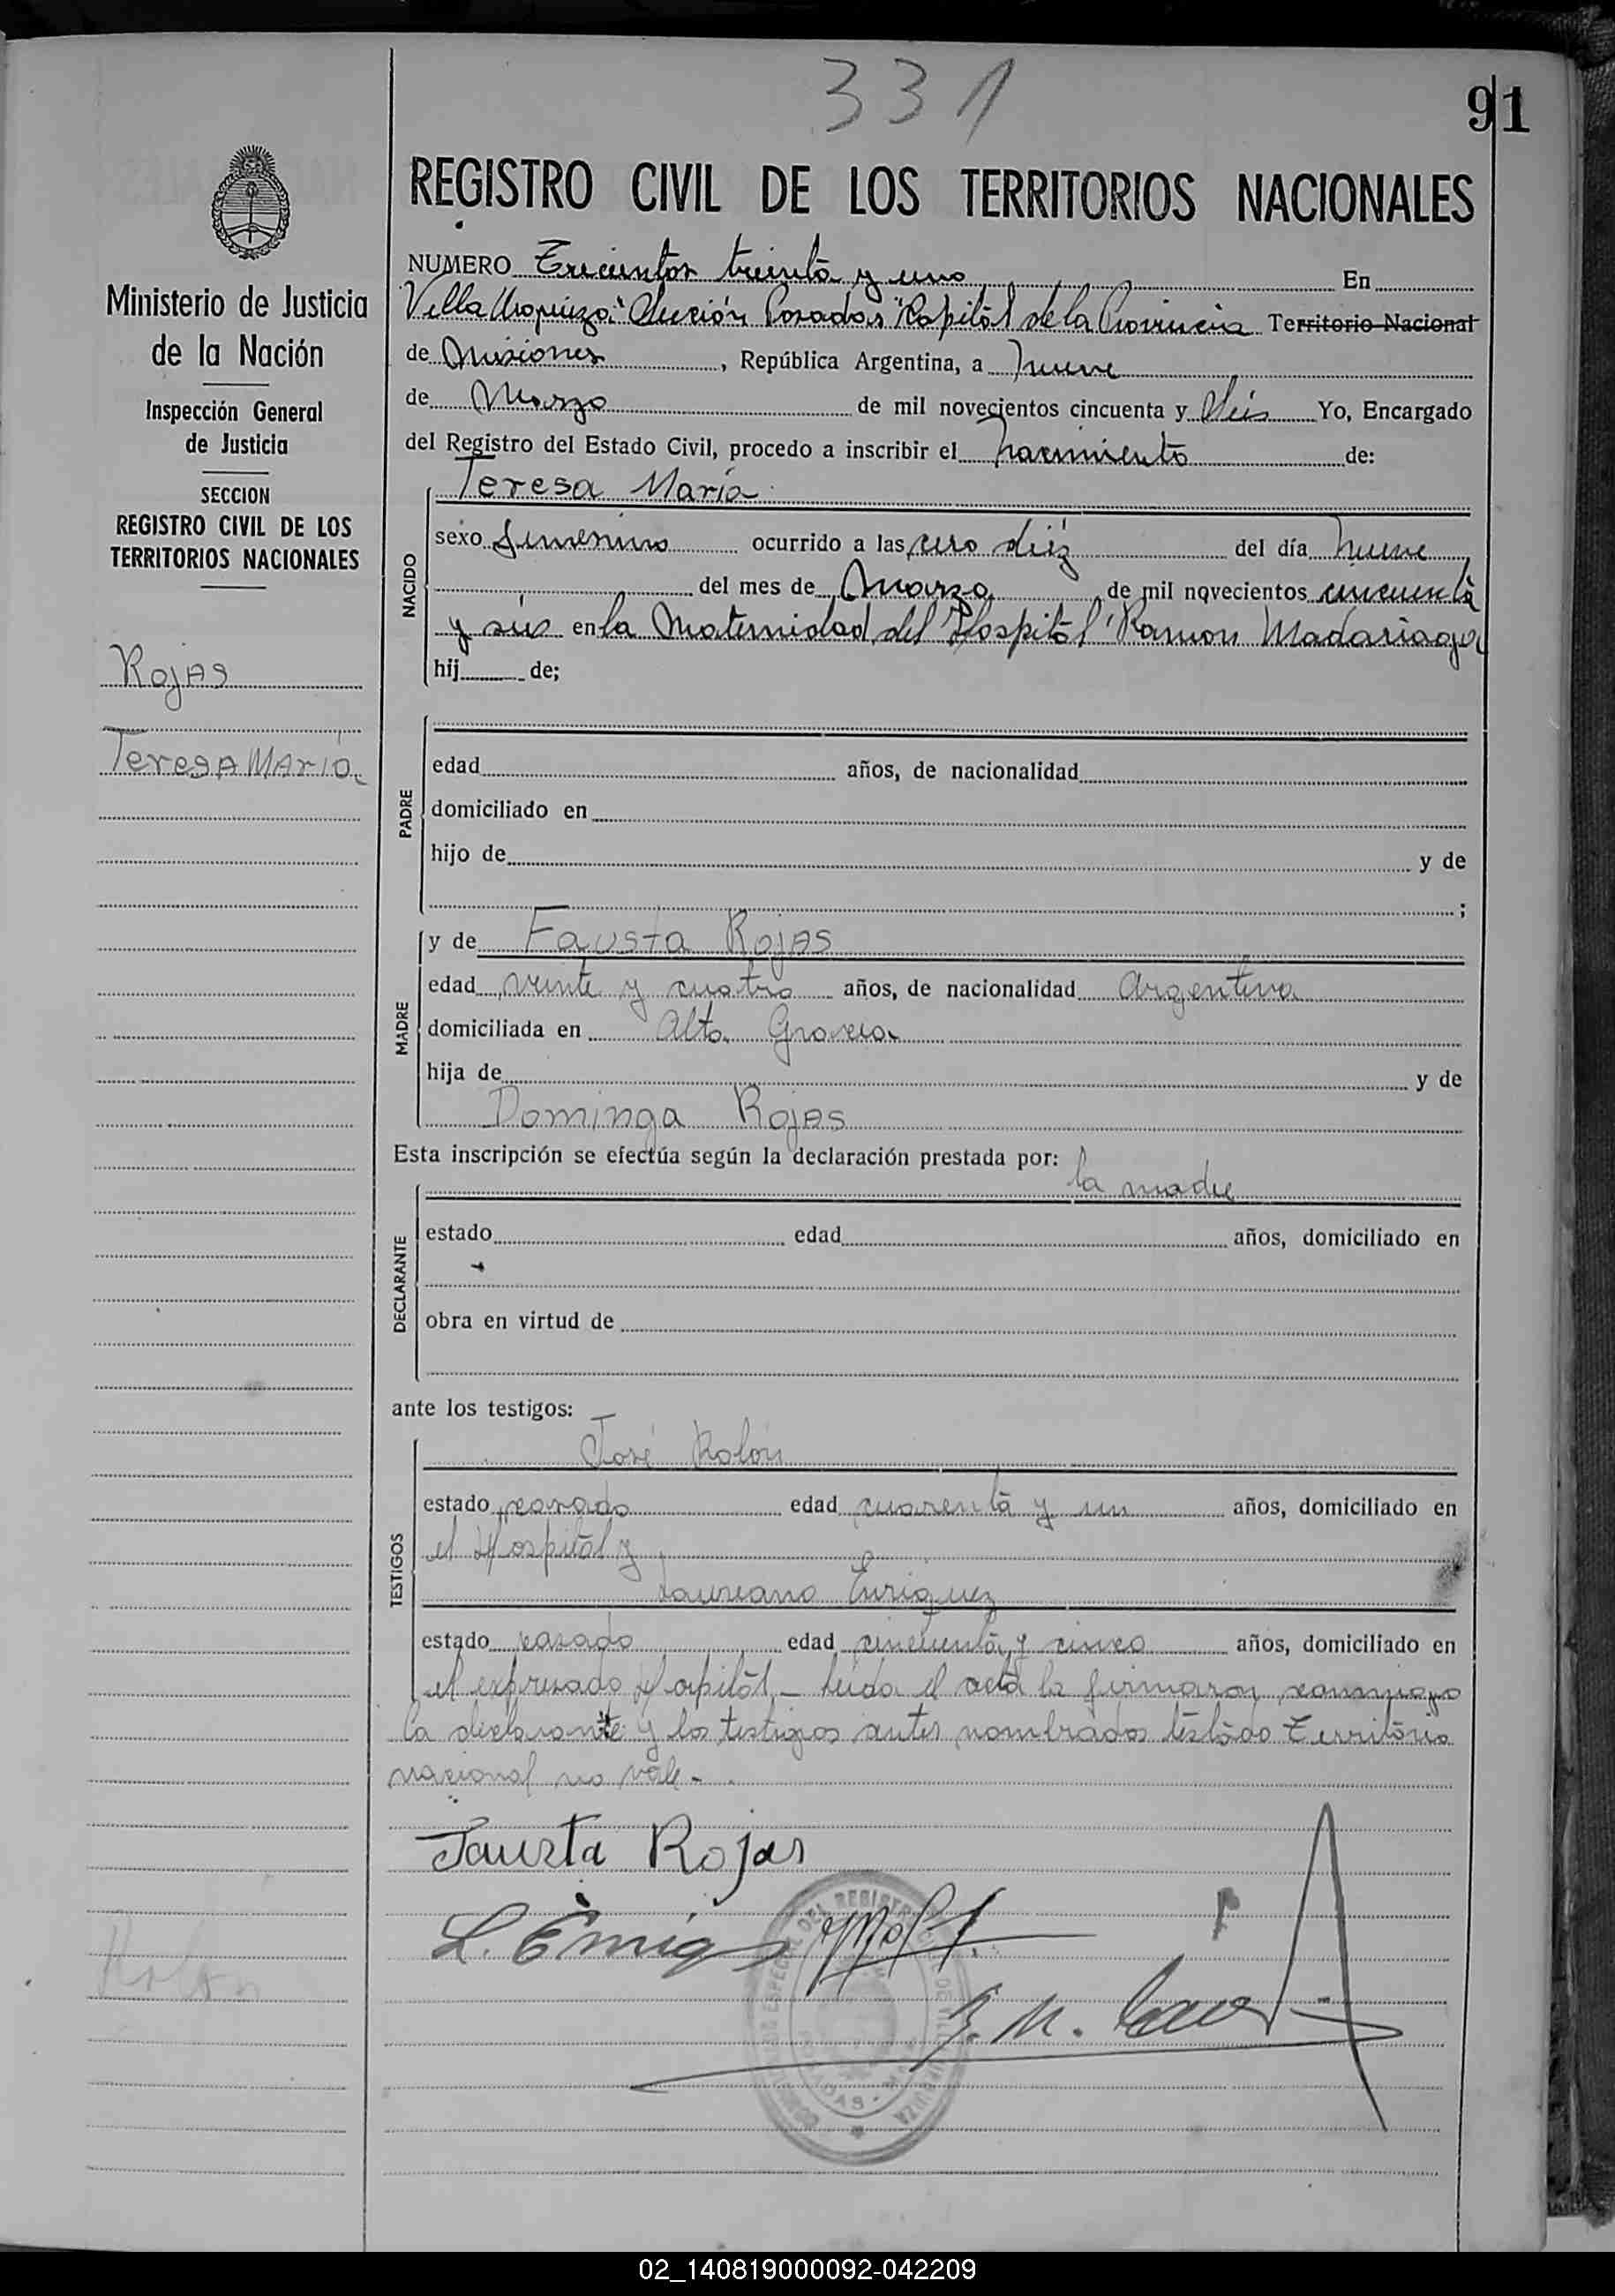 331
91
REGISTRO CIVIL DE LOS TERRITORIOS NACIONALES
Ministerio de Justicia
de la Nación
Inspección General
de Justicia
SECCION
REGISTRO CIVIL DE LOS
TERRITORIOS NACIONALES
Rojas
Teresa María
NUMERO Trecientos treinta y uno En
Villa Urquiza "Sección Posadas" Capital de la Provincia Territorio Nacional
de Misiones, República Argentina, a nueve
de Marzo de mil novecientos cincuenta y Séis Yo, Encargado
del Registro del Estado Civil, procedo a inscribir el nacimiento de:
NACIDO
Teresa María
sexo femenino ocurrido a las cero diéz del día nueve
del mes de Marzo de mil novecientos cincuenta
y séis en la Maternidad del Hospital "Ramon Madariaga
hij de;
PADRE
edad años, de nacionalidad
domiciliado en
hijo de y de
;
MADRE
y de Fausta Rojas
edad veinte y cuatro años, de nacionalidad Argentina
domiciliada en Alta Gracia
hija de y de
Dominga Rojas
Esta inscripción se efectúa según la declaración prestada por:
la madre
DECLARANTE
estado edad años, domiciliado en
obra en virtud de
ante los testigos:
TESTIGOS
José Rolon
estado casado edad cuarenta y un años, domiciliado en
el Hospital y
Laureano Enriquez
estado casado edad cincuenta y cinco años, domiciliado en
el expresado Hospital - Leida el acta la firmaron conmigo
la declarante y los testigos antes nombrados testado Territorio
nacional no vale -
Fausta Rojas
Rolon
02_140819000092-042209